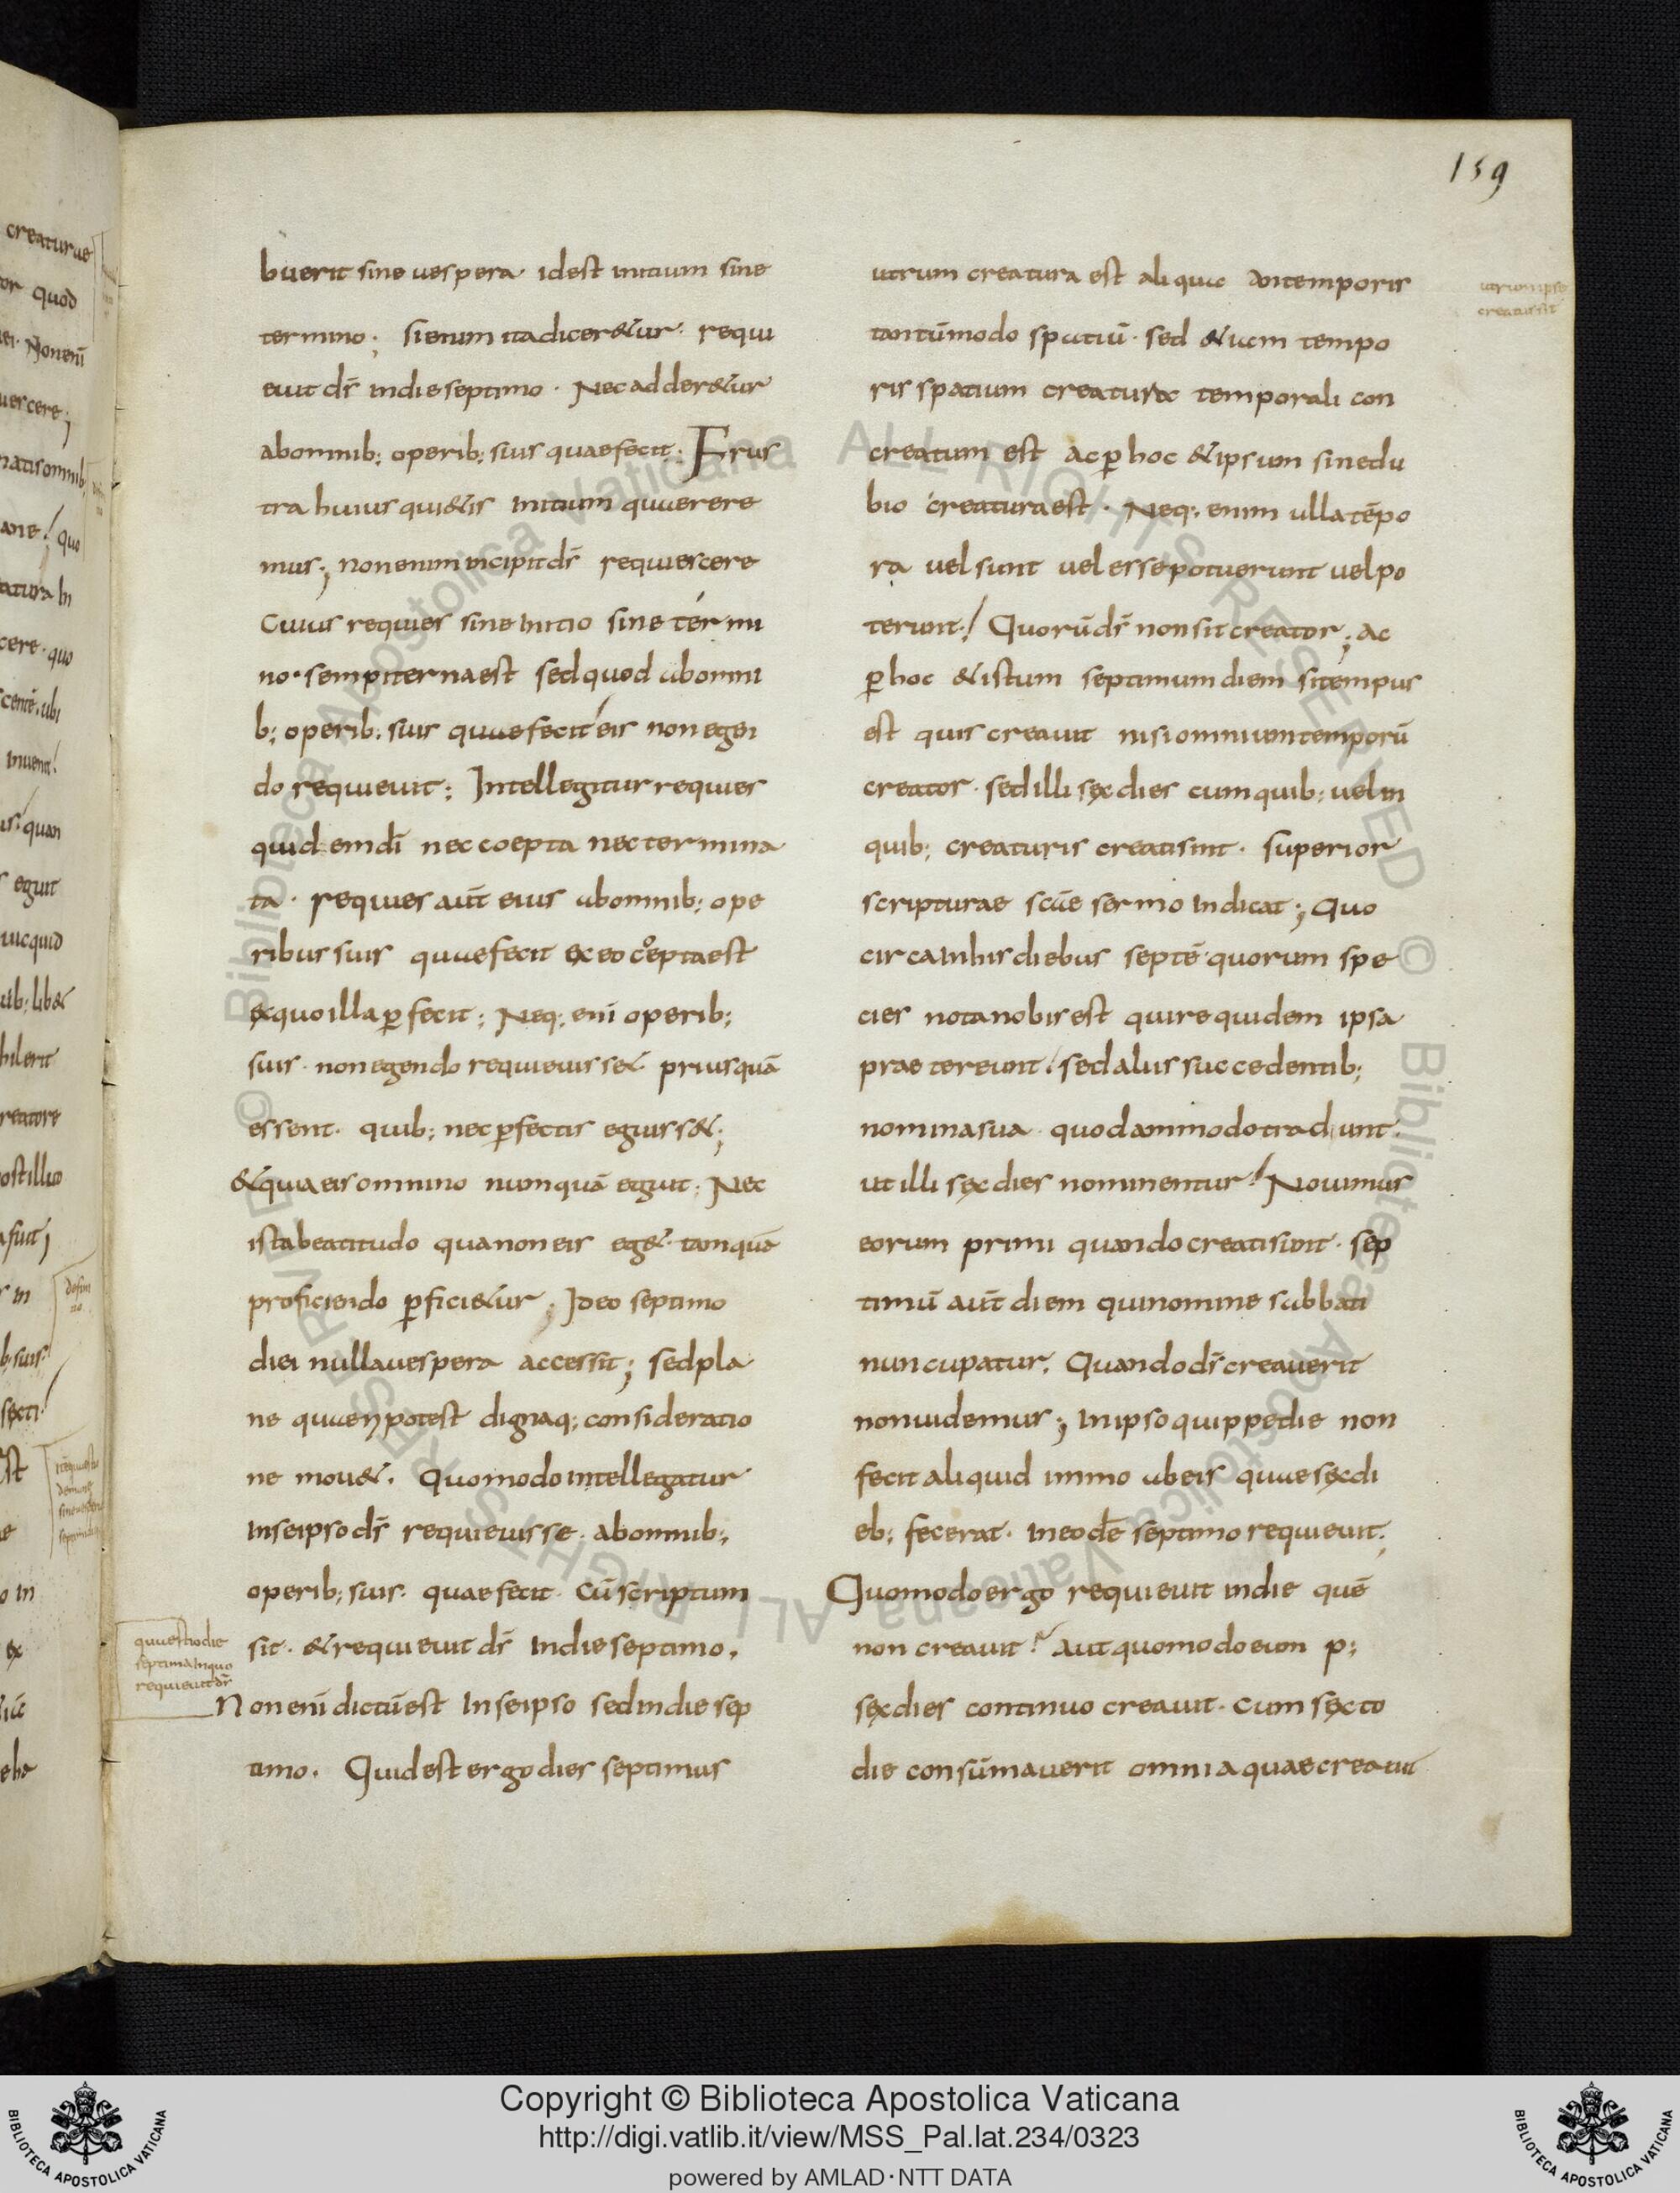 159
buerit sine uespera· id est initium sine
termino; si enim ita diceretur· requi
euit ds̄ in die septimo· Nec adderetur
ab omnib; operib; suis quae fecit· Frus
tra huius quietis initium quaerere
mus; non enim incipit ds̄ requiescere
Cuius requies sine initio sine termi
no· sempiterna est sed quod ab omni
b; operib; suis quae fecit eis non egen
do requieuit; Intellegitur requies
quidem dī nec coepta nec termina
ta· requies aūt eius ab omnib; ope
ribus suis quae fecit ex eo coepta est
ex quo illa ꝑfecit; Neq; eni operib;
suis· non egendo requieuisset priusquā
essent· quib; nec ꝑfectis eguisset;
& quia eis omnino numquā eguit; Nec
ista beatitudo qua non eis eget· tamquā
proficiendo ꝑficietur; Ideo septimo
diei nulla uespera accessit; sed pla
ne quaeri potest dignaq; consideratio
ne mouet· Quomodo intellegatur
In seipso ds̄ requieuisse· ab omnib;
operib; suis· quae fecit· Cū scriptum
sit· & requieuit ds̄ In die septimo·
Non enī dictū est In seipso sed in die sep
timo· Quid est ergo dies septimus
quaestio die
septima in quo
requieuit ds̄
utrum creatura est aliqua an temporis
tantūmodo spatiū· sed etiam tempo
ris spatium creaturae temporali con
creatum est ac ꝑ hoc & ipsum sine du
bio creatura est· Neq; enim ulla tēpo
ra uel sunt uel esse potuerunt uel po
terunt! Quorū ds̄ non sit creator; ac
ꝑ hoc & istum septimum diem si tempus
est quis creauit nisi omnium temporū
creator· sed illi sex dies cum quib; uel in
quib; creaturis creati sint· superior
scripturae scāe sermo Indicat; Quo
circa In his diebus septē quorum spe
cies nota nobis est qui requidem ipsa
praetereunt· sed aliis succedentib;
nomina sua quodammodo tradunt·
ut illi sex dies nominentur! Nouimus
eorum primi quando creati sint· sep
timū aūt diem qui nomine sabbati
nuncupatur· Quando ds̄ creauerit
non uidemus; In ipso quippe die non
fecit aliquid immo ab eis quae sex di
eb; fecerat· In eodē septimo requieuit;
Quomodo ergo requieuit in die quē
non creauit? Aut quomodo eum p;
sex dies continuo creauit· Cum sexto
die consūmauerit omnia quae creauit
utrum ipse
creatus sit
Copyright © Biblioteca Apostolica Vaticana
http://digi.vatlib.it/view/MSS_Pal.lat.234/0323
powered by AMLAD·NTT DATA
BIBLIOTECA APOSTOLICA VATICANA
BIBLIOTECA APOSTOLICA VATICANA
© Biblioteca Apostolica Vaticana ALL RIGHTS RESERVED © Biblioteca Apostolica Vaticana ALL RIGHTS RESERVED